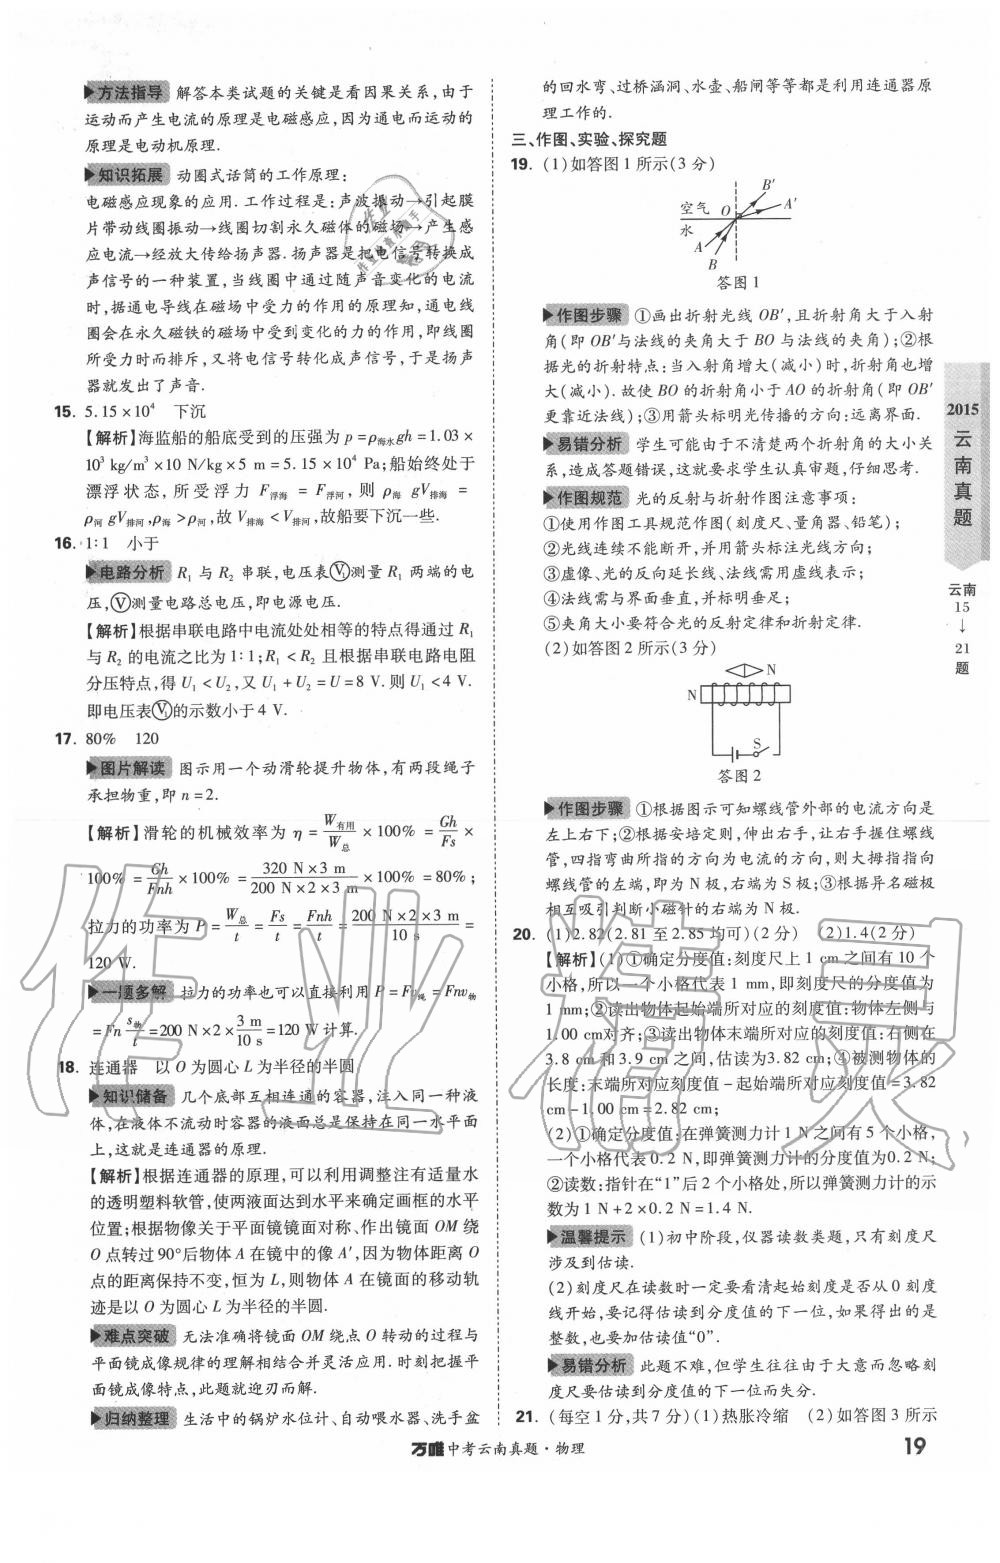 ▶方法指导 解答本类试题的关键是看因果关系,由于
运动而产生电流的原理是电磁感应,因为通电而运动的
原理是电动机原理.
▶知识拓展 动圈式话筒的工作原理:
电磁感应现象的应用.工作过程是:声波振动→引起膜
片带动线圈振动→线圈切割永久磁体的磁场→产生感
应电流→经放大传给扬声器.扬声器是把电信号转换成
声信号的一种装置,当线圈中通过随声音变化的电流
时,据通电导线在磁场中受力的作用的原理知,通电线
圈会在永久磁铁的磁场中受到变化的力的作用,即线圈
所受力时而排斥,又将电信号转化成声信号,于是扬声
器就发出了声音.
15. 5.15×10⁴ 下沉
【解析】海监船的船底受到的压强为p=ρ海水gh=1.03×
10³ kg/m³×10 N/kg×5 m=5.15×10⁴ Pa;船始终处于
漂浮状态,所受浮力F浮海=F浮河,则ρ海gV排海=
ρ河gV排河,ρ海>ρ河,故V排海<V排河,故船要下沉一些.
16. 1:1 小于
▶电路分析 R₁与R₂串联,电压表Ⓥ₁测量R₁两端的电
压,Ⓥ测量电路总电压,即电源电压.
【解析】根据串联电路中电流处处相等的特点得通过R₁
与R₂的电流之比为1:1;R₁<R₂且根据串联电路电阻
分压特点,得U₁<U₂,又U₁+U₂=U=8 V.则U₁<4 V.
即电压表Ⓥ₁的示数小于4 V.
17. 80% 120
▶图片解读 图示用一个动滑轮提升物体,有两段绳子
承担物重,即n=2.
【解析】滑轮的机械效率为η=W有用/W总×100%=Gh/Fs×
100%=Gh/Fnh×100%=320 N×3 m/200 N×2×3 m×100%=80%;
拉力的功率为P=W总/t=Fs/t=Fnh/t=200 N×2×3 m/10 s=
120 W.
▶一题多解 拉力的功率也可以直接利用P=Fv绳=Fnv物
=Fn s物/t=200 N×2×3 m/10 s=120 W计算.
18. 连通器 以O为圆心L为半径的半圆
▶知识储备 几个底部互相连通的容器,注入同一种液
体,在液体不流动时容器的液面总是保持在同一水平面
上,这就是连通器的原理.
【解析】根据连通器的原理,可以利用调整注有适量水
的透明塑料软管,使两液面达到水平来确定画框的水平
位置;根据物像关于平面镜镜面对称、作出镜面OM绕
O点转过90°后物体A在镜中的像A′,因为物体距离O
点的距离保持不变,恒为L,则物体A在镜面的移动轨
迹是以O为圆心L为半径的半圆.
▶难点突破 无法准确将镜面OM绕点O转动的过程与
平面镜成像规律的理解相结合并灵活应用.时刻把握平
面镜成像特点,此题就迎刃而解.
▶归纳整理 生活中的锅炉水位计、自动喂水器、洗手盆
的回水弯、过桥涵洞、水壶、船闸等等都是利用连通器原
理工作的.
三、作图、实验、探究题
19. (1)如答图1所示(3分)
B′
空气 O A′
水
A
B
答图1
▶作图步骤 ①画出折射光线OB′,且折射角大于入射
角(即OB′与法线的夹角大于BO与法线的夹角);②根
据光的折射特点:当入射角增大(减小)时,折射角也增
大(减小).故使BO的折射角小于AO的折射角(即OB′
更靠近法线);③用箭头标明光传播的方向:远离界面.
▶易错分析 学生可能由于不清楚两个折射角的大小关
系,造成答题错误,这就要求学生认真审题,仔细思考.
▶作图规范 光的反射与折射作图注意事项:
①使用作图工具规范作图(刻度尺、量角器、铅笔);
②光线连续不能断开,并用箭头标注光线方向;
③虚像、光的反向延长线、法线需用虚线表示;
④法线需与界面垂直,并标明垂足;
⑤夹角大小要符合光的反射定律和折射定律.
(2)如答图2所示(3分)
N
N
S
答图2
▶作图步骤 ①根据图示可知螺线管外部的电流方向是
左上右下;②根据安培定则,伸出右手,让右手握住螺线
管,四指弯曲所指的方向为电流的方向,则大拇指指向
螺线管的左端,即为N极,右端为S极;③根据异名磁极
相互吸引判断小磁针的右端为N极.
20. (1)2.82(2.81至2.85均可)(2分) (2)1.4(2分)
【解析】(1)①确定分度值:刻度尺上1 cm之间有10个
小格,所以一个小格代表1 mm,即刻度尺的分度值为
1 mm;②读出物体起始端所对应的刻度值:物体左侧与
1.00 cm对齐;③读出物体末端所对应的刻度值:右侧在
3.8 cm和3.9 cm之间,估读为3.82 cm;④被测物体的
长度:末端所对应刻度值-起始端所对应刻度值=3.82
cm-1.00 cm=2.82 cm;
(2)①确定分度值:在弹簧测力计1 N之间有5个小格,
一个小格代表0.2 N,即弹簧测力计的分度值为0.2 N;
②读数:指针在“1”后2个小格处,所以弹簧测力计的示
数为1 N+2×0.2 N=1.4 N.
▶温馨提示 (1)初中阶段,仪器读数类题,只有刻度尺
涉及到估读.
(2)刻度尺在读数时一定要看清起始刻度是否从0刻度
线开始,要记得估读到分度值的下一位,如果得出的是
整数,也要加估读值“0”.
▶易错分析 此题不难,但学生往往由于大意而忽略刻
度尺要估读到分度值的下一位而失分.
21. (每空1分,共7分)(1)热胀冷缩 (2)如答图3所示
2015
云南真题
云南
15
↓
21
题
万唯中考云南真题·物理
19
作业精灵